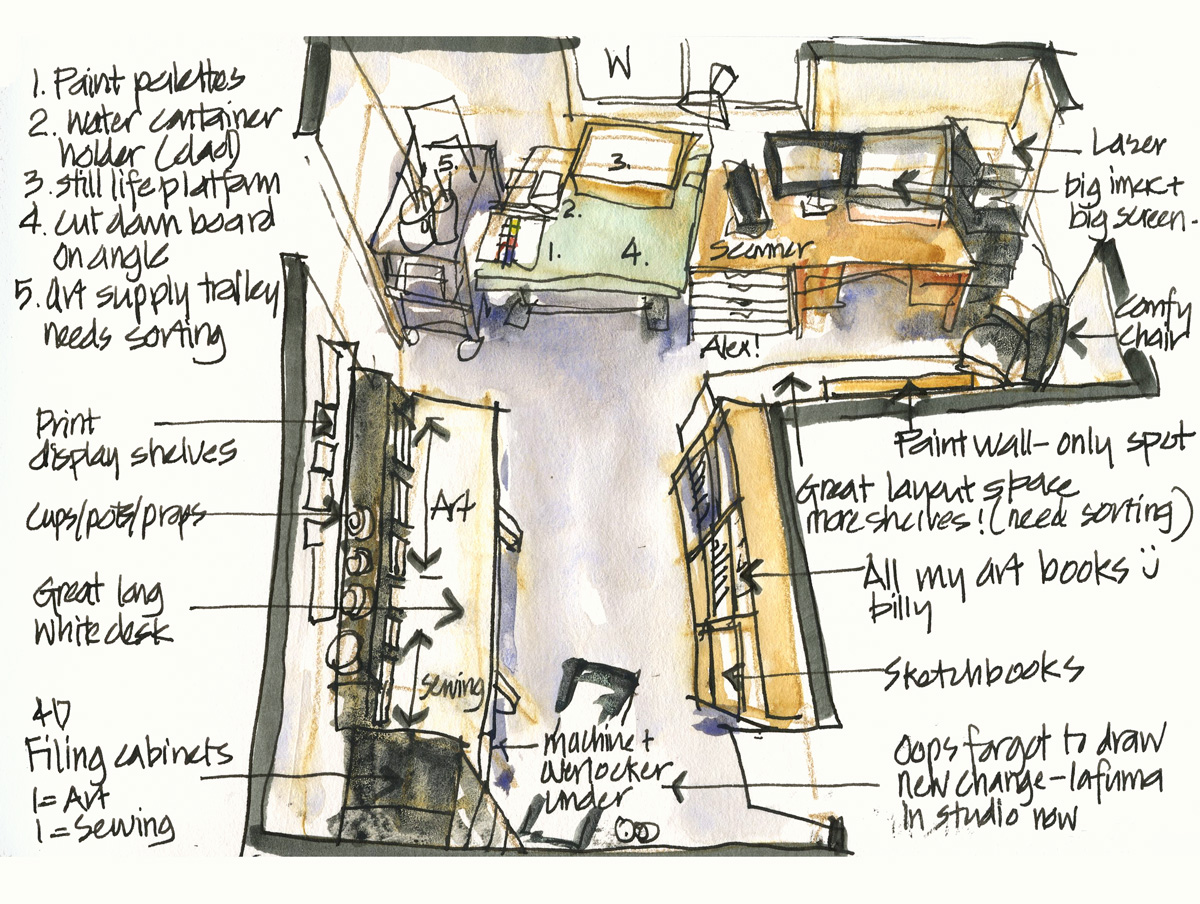 1. Paint palettes
2. Water container
holder (dad)
3. Still life platform
4. Cut down board
on angle
5. Art supply trolley
needs sorting
Print
display shelves
Cups/pots/props
Great long
white desk
4D
Filing cabinets
1 = Art
1 = Sewing
W
5.
3.
2.
1.
4.
Scanner
Alex!
Art
Sewing
machine +
overlocker
under
Laser
big imac +
big screen.
Comfy
chair
Paint wall - only spot
Great layout space
more shelves! (need sorting)
All my art books
billy
Sketchbooks
Oops forgot to draw
new change - lafuma
in studio now